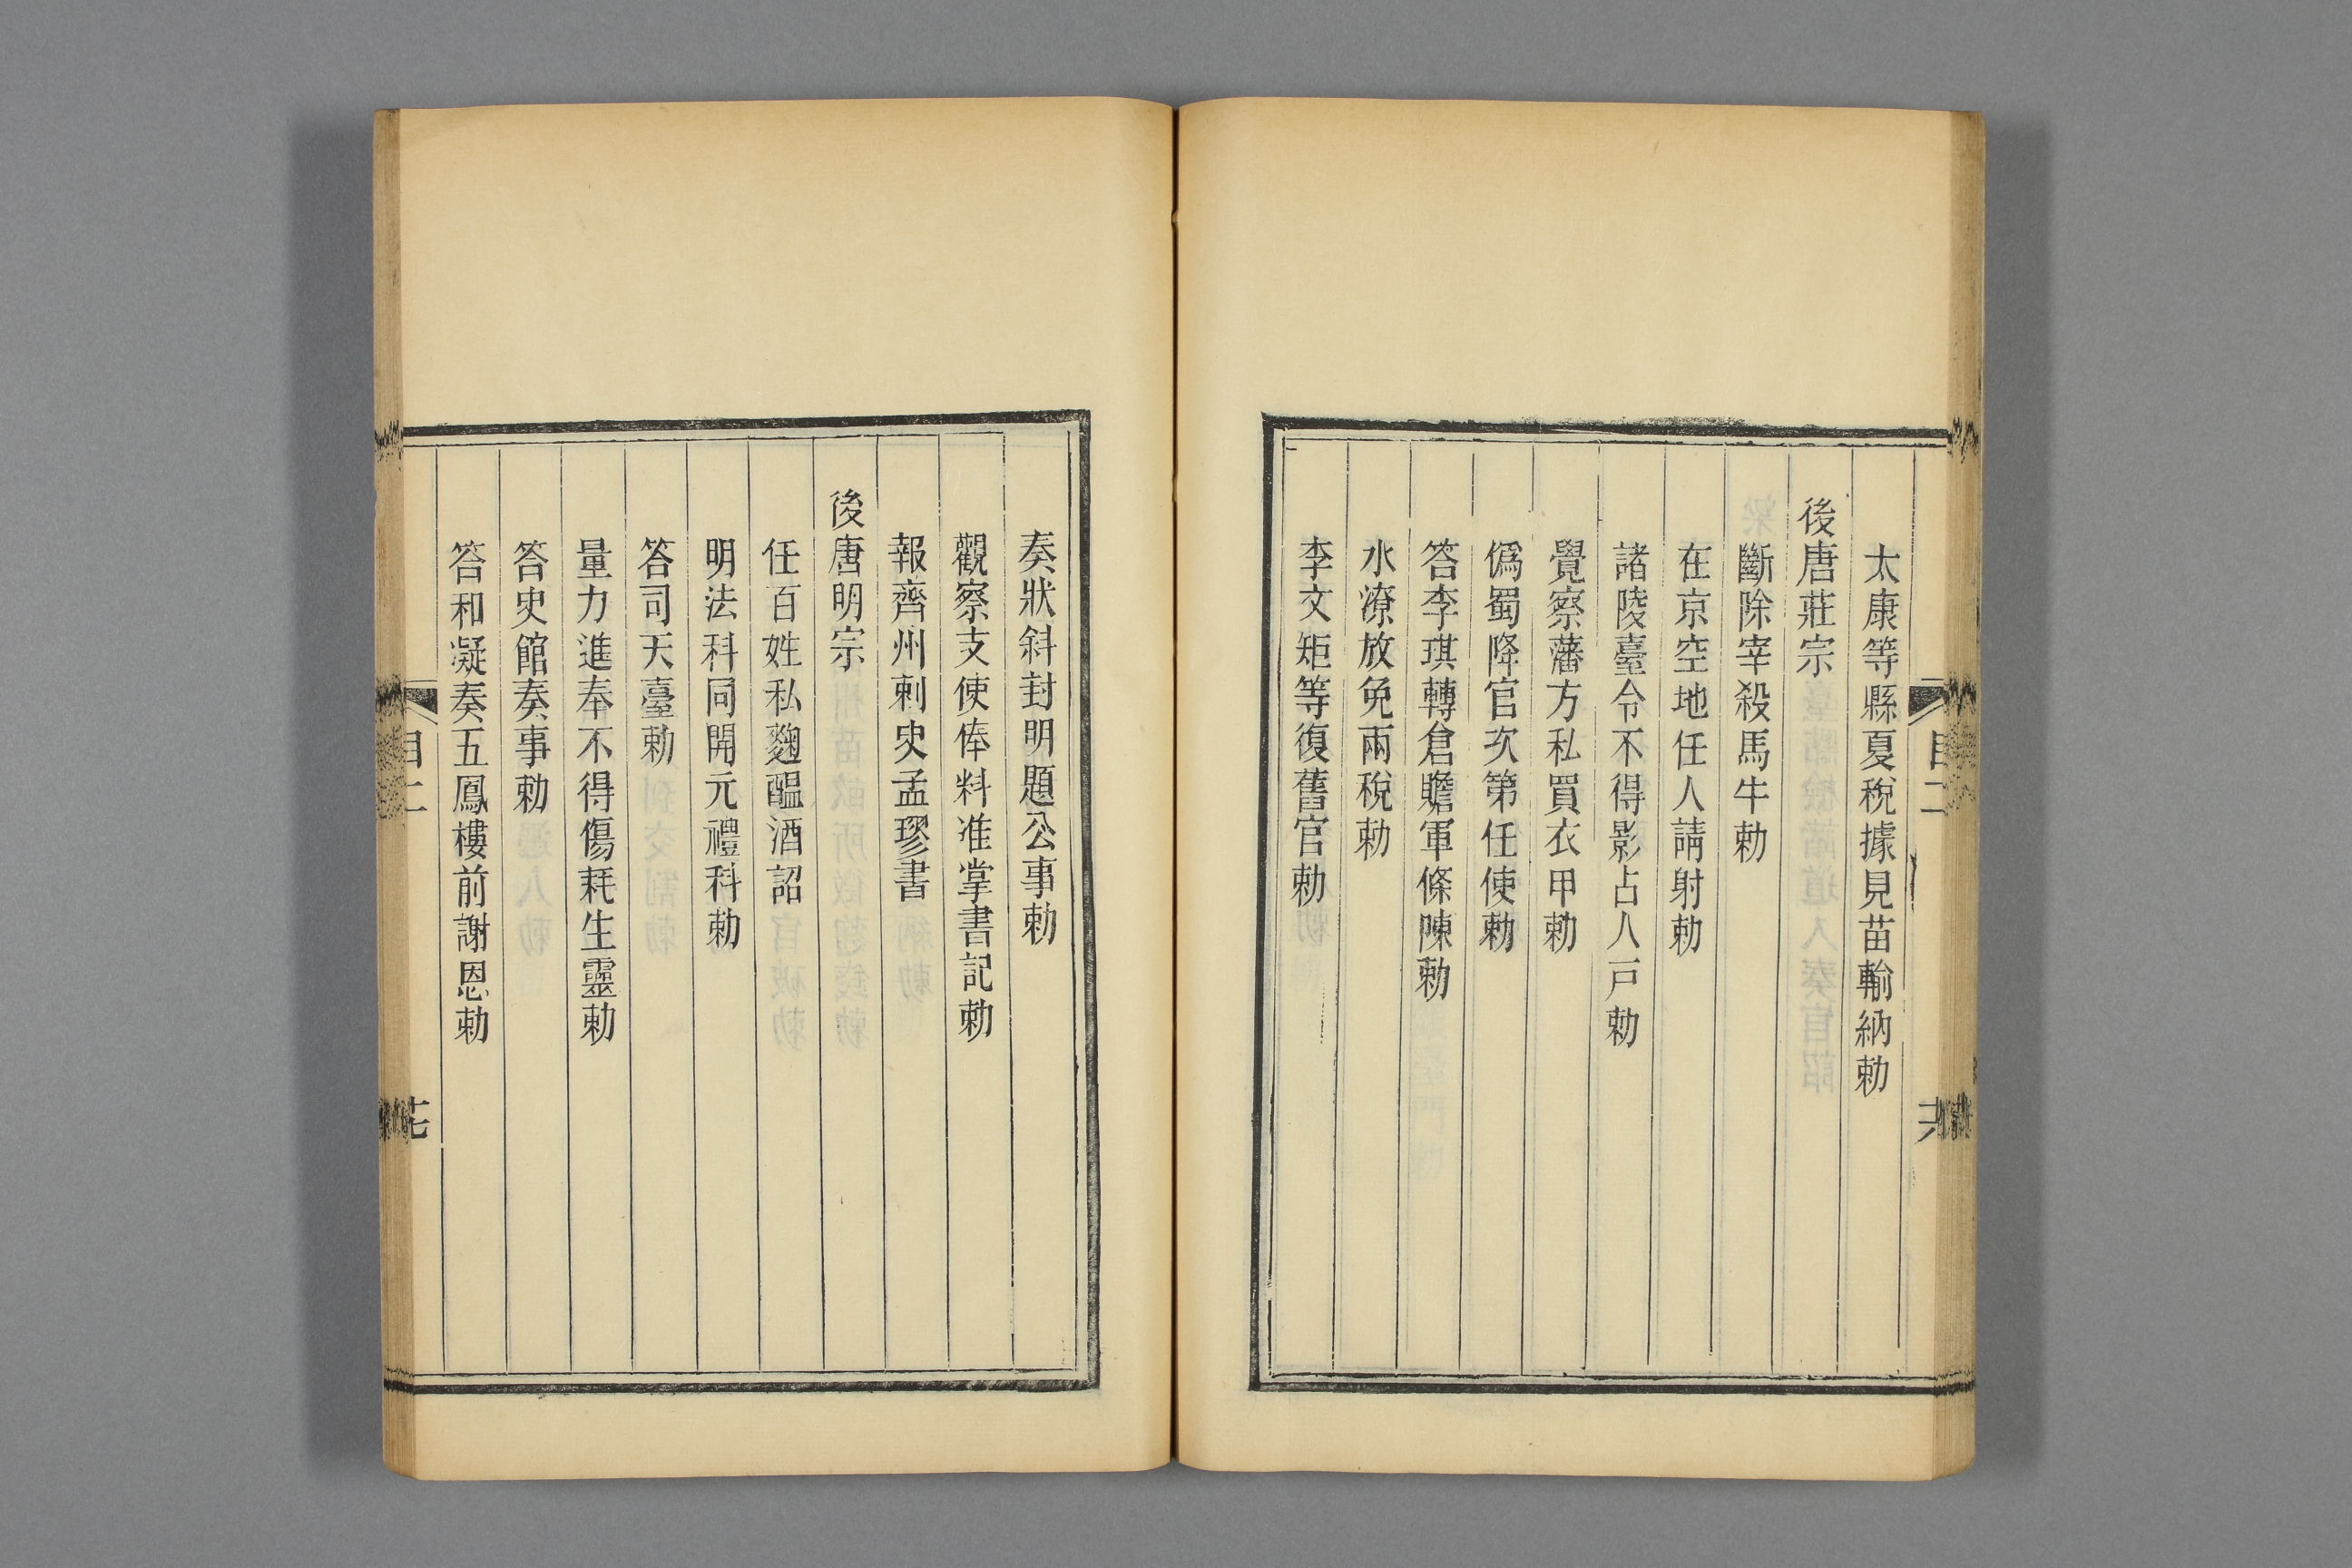 太康等縣夏稅據見苗輸納勅
後唐莊宗
斷除宰殺馬牛勅
在京空地任人請射勅
諸陵臺令不得影占人戸勅
覺察藩方私買衣甲勅
僞蜀降官次第任使勅
答李琪轉倉贍軍條陳勅
水潦放免兩稅勅
李文矩等復舊官勅
奏狀斜封明題公事勅
觀察支使俸料准掌書記勅
報齊州刺史孟璆書
後唐明宗
任百姓私麴醞酒詔
明法科同開元禮科勅
答司天臺勅
量力進奉不得傷耗生靈勅
答史館奏事勅
答和凝奏五鳳樓前謝恩勅
目二